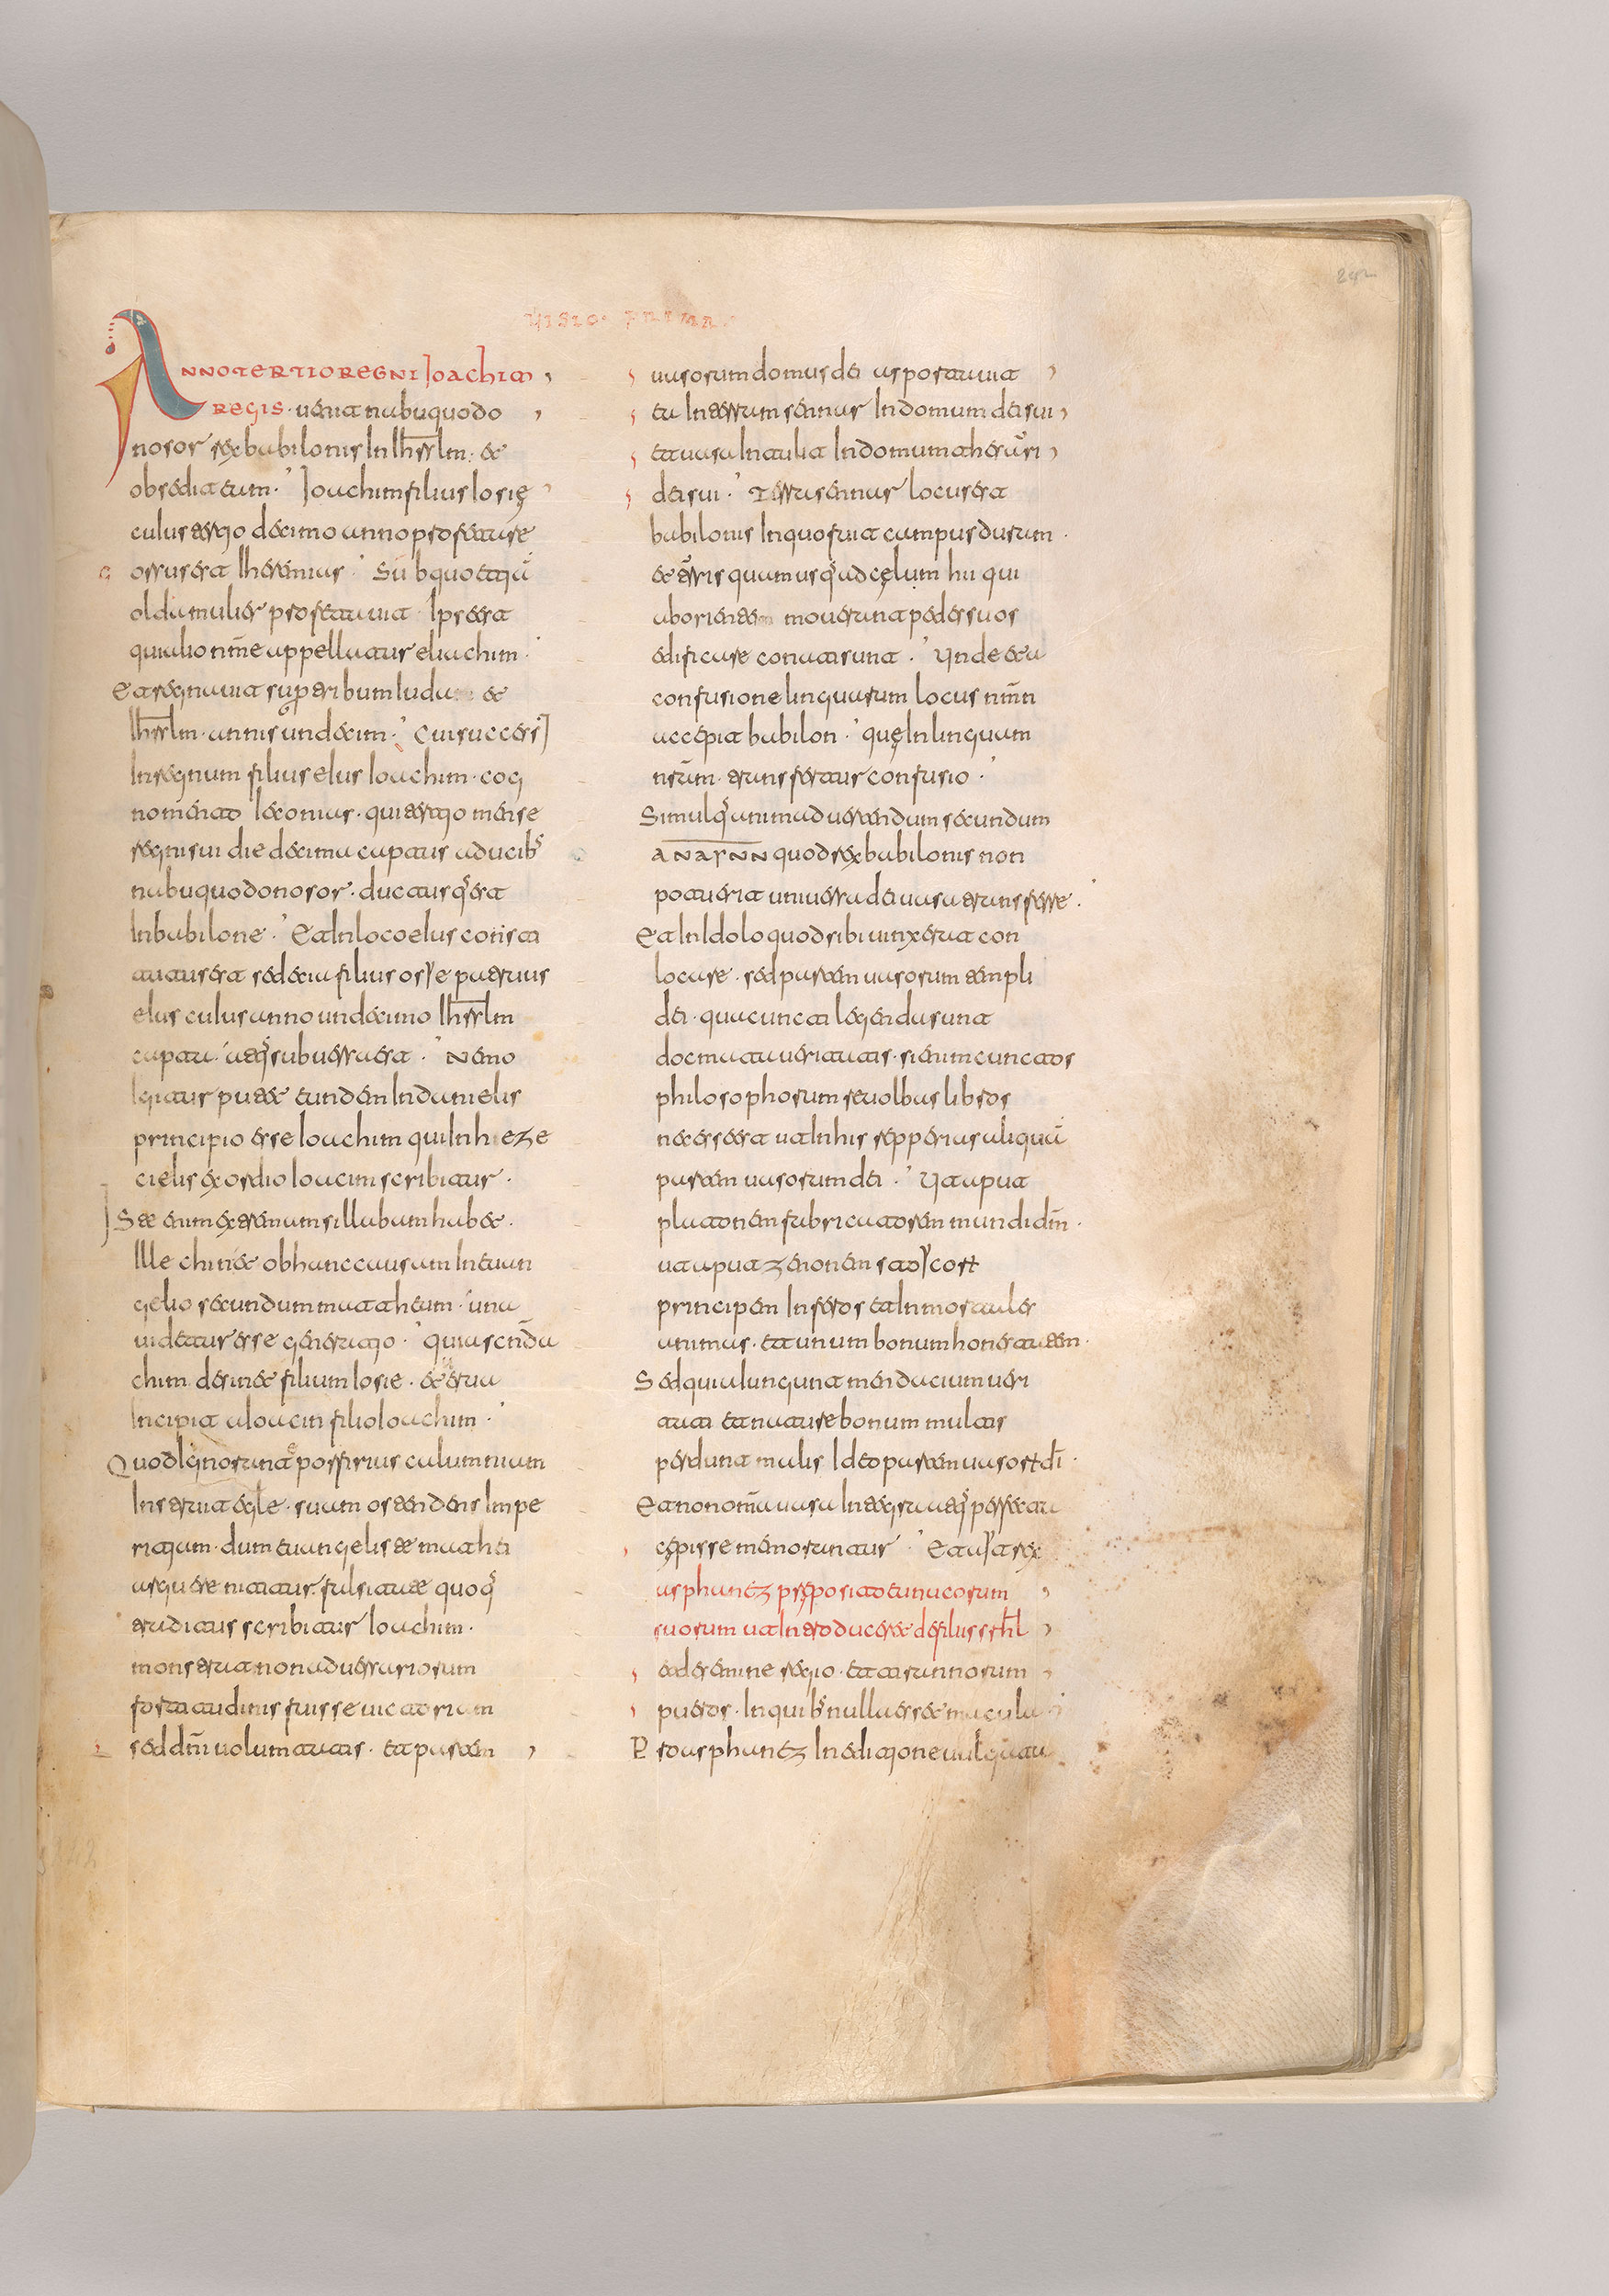 242
VISIO PRIMA
ANNO TERTIO REGNI Joachim
REGIS · uenit nabuquodo
nosor rex babilonis in ihrslm: et
obsedit eum · Joachim filius iosię
cuius tertio decimo anno profetare
orsus est iheremias · Sub quo et
olda mulier profetauit · Ipse est
qui alio nme appellatur eliachim ·
Et regnauit super tribum iuda et
ihrslm · annis undecim · Cui successi
in regnum filius eius ioachim · cog
nomento ieconias · qui tertio mense
regni sui die decima captus a ducibs
nabuquodonosor · ductusq est
in babilone · Et in loco eius consti
tutus est sedecia filius osse patruus
eius cuius anno undecimo ihrslm
capta · atq subuersa est · Nemo
igitur putet eundem in danielis
principio esse ioachim qui in hieze
cielis exordio ioacim scribitur ·
Iste enim extremum sillabum habet ·
Ille chin et ob hanc causam in euan
gelio secundum matheum · una
uidetur esse generatio · quia scnda
chim desinet filium iosie · et tertia
incipit a ioacin filio ioachim ·
Quod ignorans porfirius calumnium
instruit eglę · suam ostendens impe
ritium · dum euangeliste mathei
arguere nititur falsitate quoq
traditus scribitur ioachim ·
monstrat non aduersariorum
fortitudinis fuisse uictoriam
sed dni uolumtatis · et partem
uasorum domus dei asportauit
eu in terram sennar in domum dei sui
et uasa intulit in domum thesauri
dei sui · Terra sennar locus est
babilonis in quo fuit campus duram ·
et turris quam usq ad cęlum hii qui
ab oriente mouerunt pedes suos
edificare conati sunt · Unde et a
confusione linguarum locus nmn
accepit babilon · quę in linguam
nsram · transfertur confusio ·
Simulq animaduertendum secundum
quod rex babilonis non
potuerit uniuersa dei uasa transferre ·
Et in idolo quod sibi uinxerat con
locare · sed partem uasorum templi
dei · qua cuncti legendu sunt
docmata ueritatis · si enim cunctos
philosophorum libros
necesse est ut in his repperias aliqua
partem uasorum dei · Ut aput
platonem fabricatorem mundi dm ·
ut aput zenonem
principem inferos et inmortales
animas · et unum bonum honestatem ·
Sed quia iungunt mendacium ueri
tati et naturae bonum multis
perdunt malis ideo partem uasor di ·
Et non omia uasa integra atq perfecta
cępisse memorantur · Et ait rex
asphanez pręposito eunucorum
suorum ut introduceret de filiis srhl
et de semine regio · et tirannorum
pueros · in quibs nulla esset macula
Pro asphanez in editione uulgata